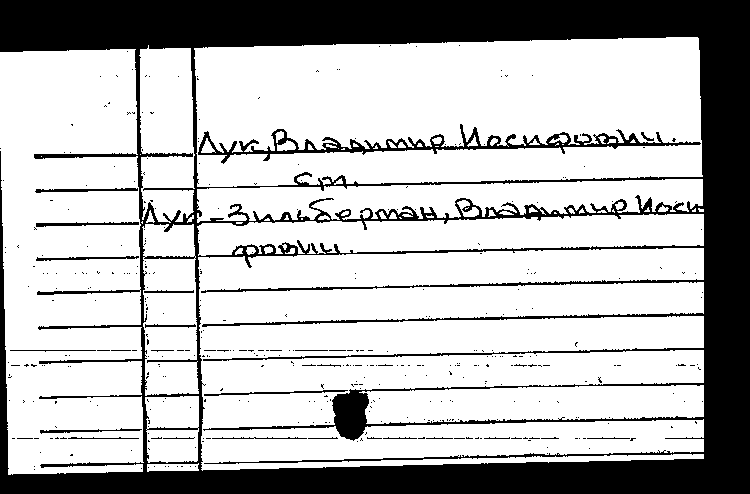 Лук, Владимир Иосифович.
см.
Лук-Зильберман, Владимир Иоси
фович.